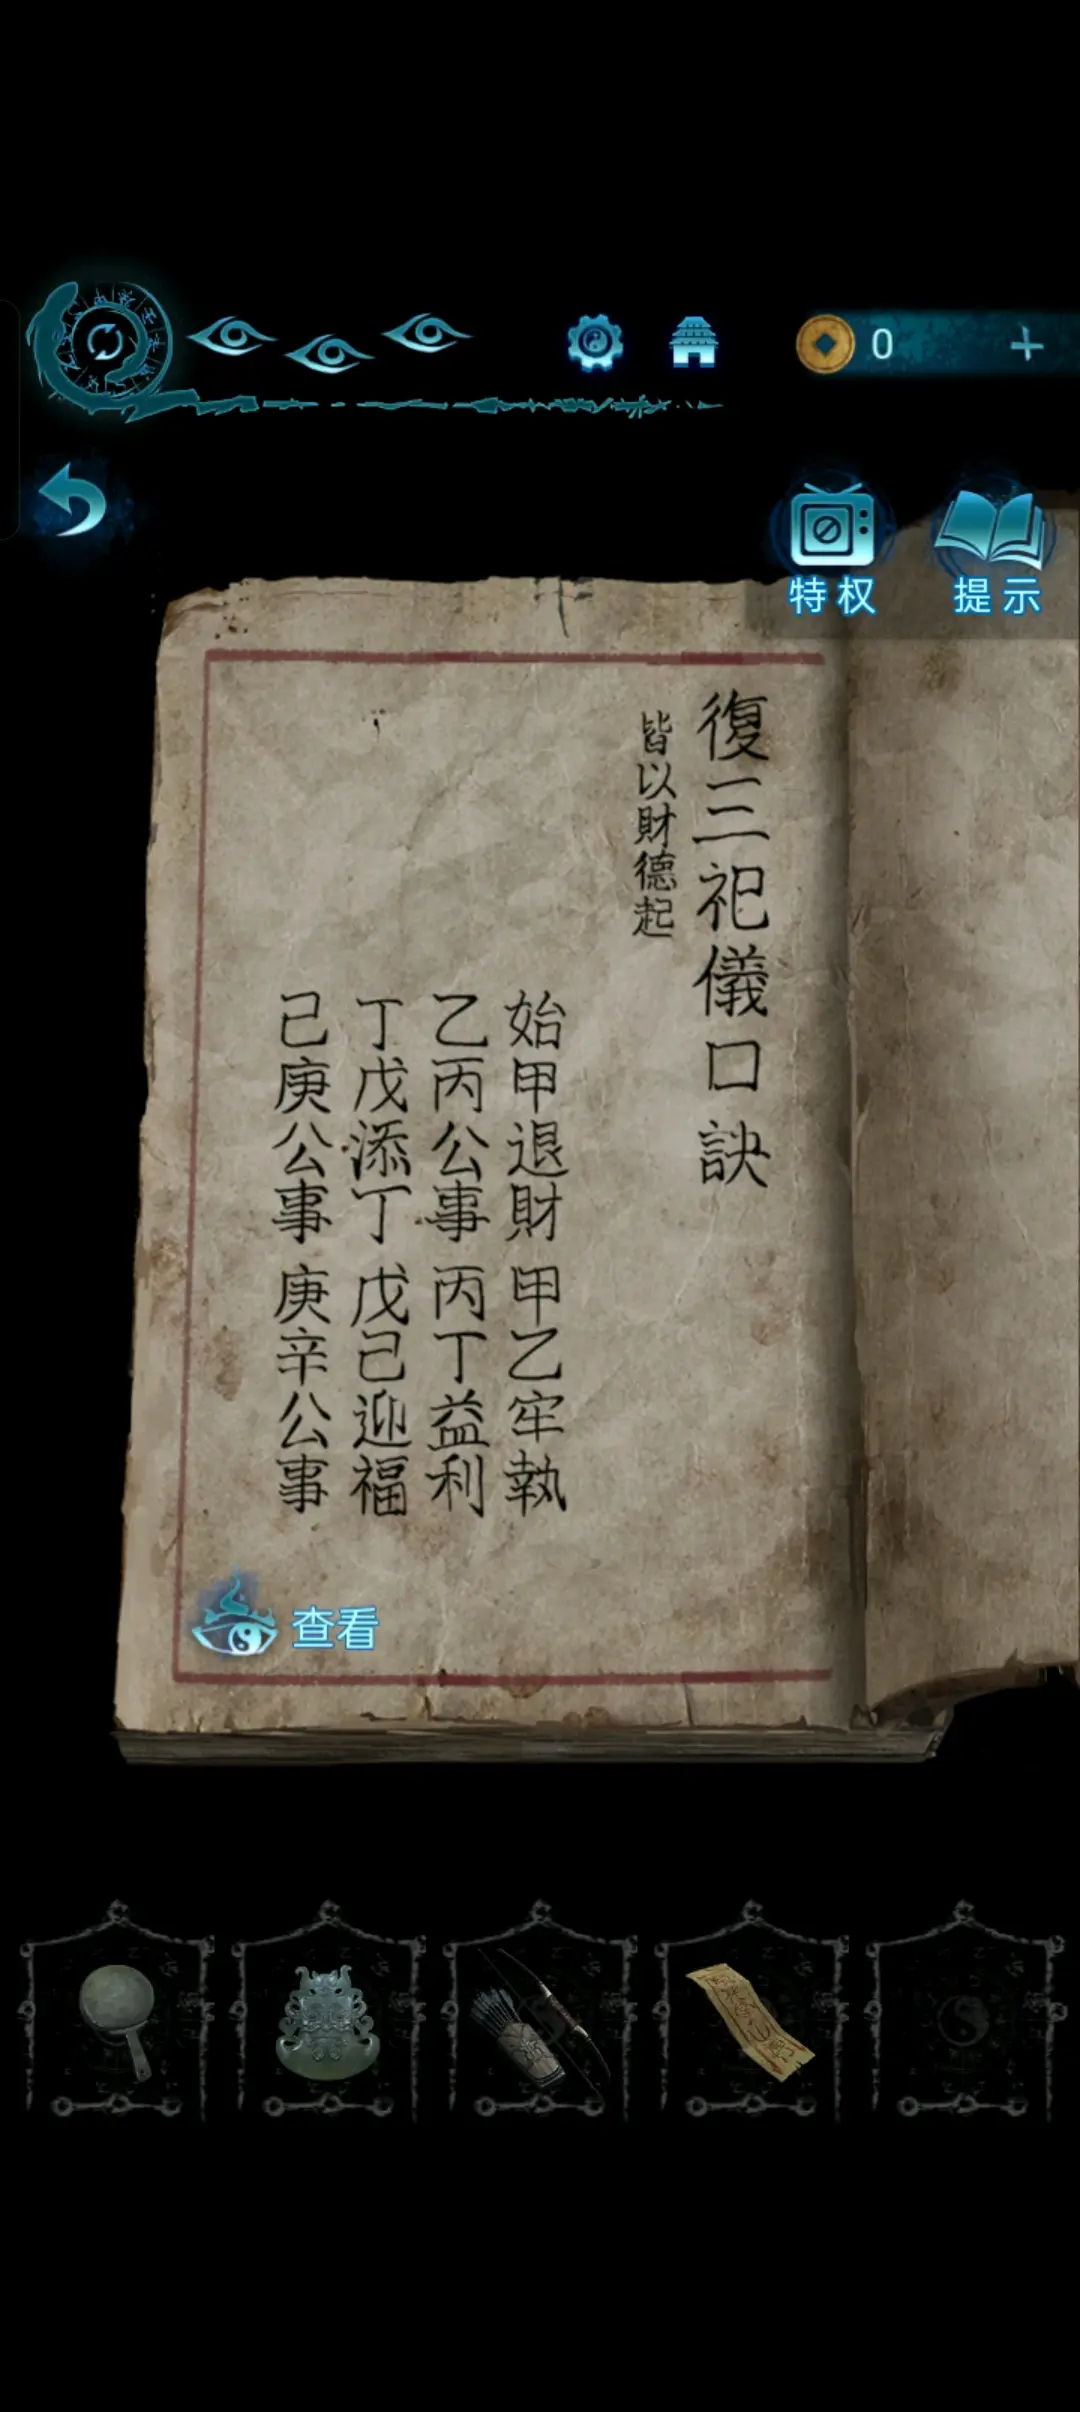 0
特权
提示
復三祀儀口訣
皆以財德起
始甲退財 甲乙牢執
乙丙公事 丙丁益利
丁戊添丁 戊己迎福
己庚公事 庚辛公事
查看